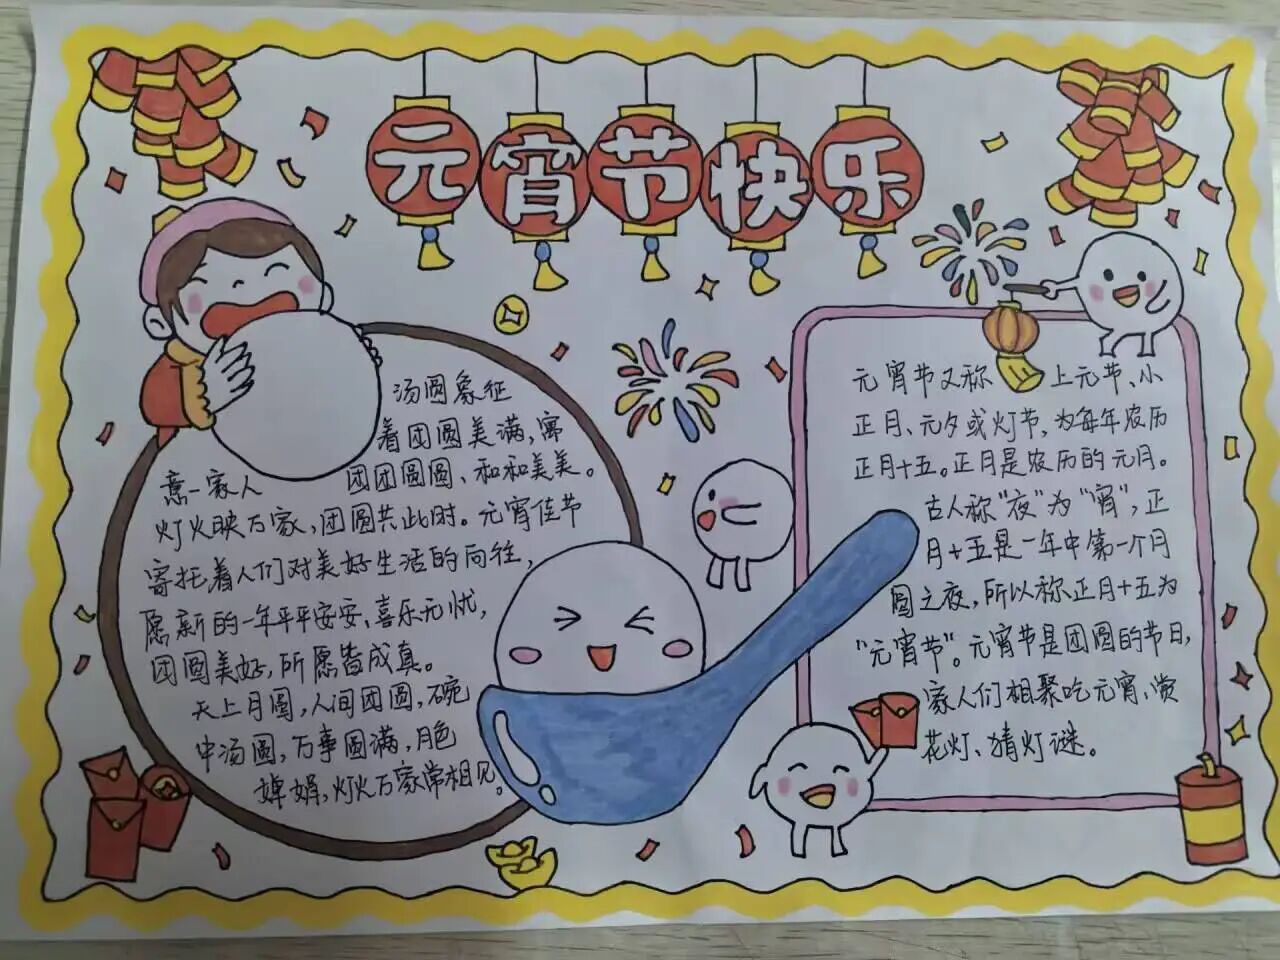 元宵节快乐
汤圆象征
着团圆美满,寓
意一家人 团团圆圆、和和美美。
灯火映万家,团圆共此时。元宵佳节
寄托着人们对美好生活的向往,
愿新的一年平平安安、喜乐无忧,
团圆美好,所愿皆成真。
天上月圆,人间团圆,碗
中汤圆,万事圆满,月色
婵娟,灯火万家常相见。
元宵节又称 上元节、小
正月、元夕或灯节,为每年农历
正月十五。正月是农历的元月。
古人称“夜”为“宵”,正
月十五是一年中第一个月
圆之夜,所以称正月十五为
“元宵节”。元宵节是团圆的节日,
家人们相聚吃元宵、赏
花灯、猜灯谜。